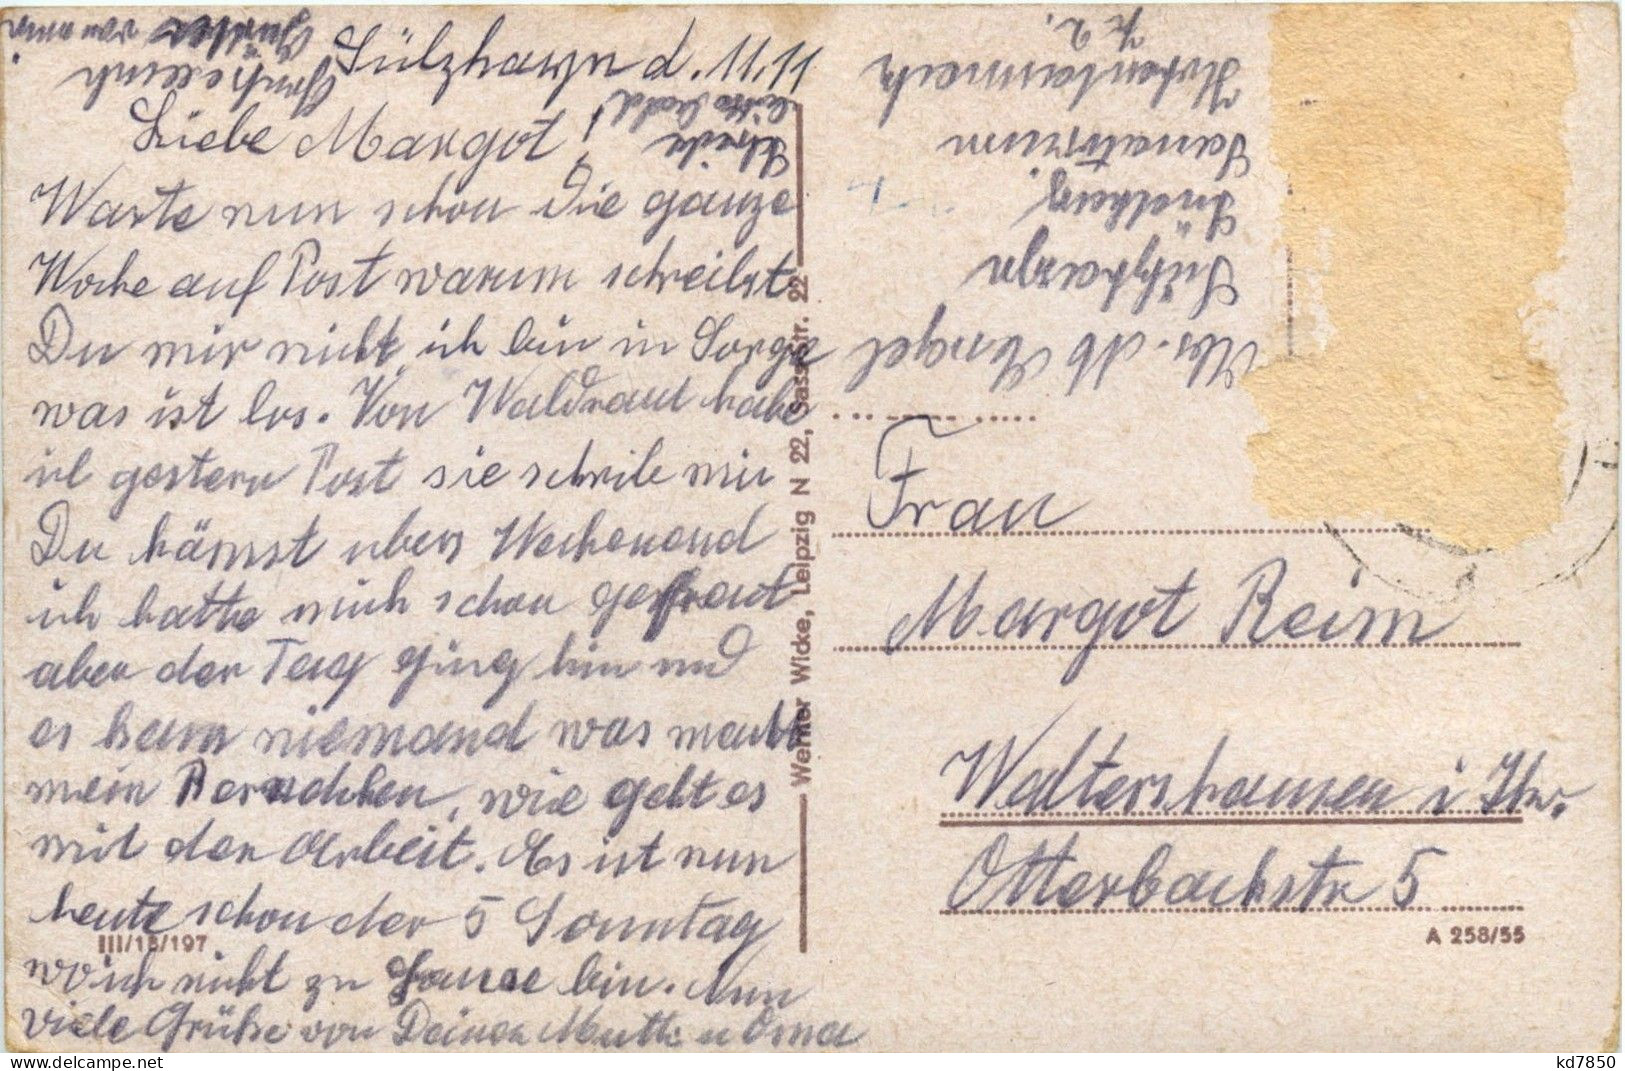 Sülzhayn d. 11.11
Liebe Margot!
Warte nun schon die ganze
Woche auf Post warum schreibst
Du mir nicht, ich bin in Sorge
was ist los. Von Waldraut habe
ich gestern Post sie schrieb mir
Du kämst übers Wochenend
ich hatte mich schon gefreut
aber der Tag ging hin und
es kam niemand was macht
mein, wie geht es
mit der Arbeit. Es ist nun
heute schon der 5 Sonntag
wo ich nicht zu Hause bin. Nun
viele Grüße von Deiner Mutti u Oma
Schreibe
bitte bald
von einer
Abs. Engel
Sülzhayn
Südharz
Sanatorium
Hohentanneck
Z 2.
Frau
Margot Reim
Waltershausen i Thr.
Otterbachstr 5
Werner Wicke, Leipzig N 22, Sassstr. 22
III/18/197
A 258/55
kd7850